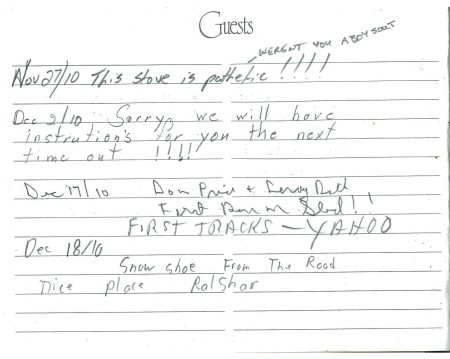 Guests
WERENT YOU A BOY SCOUT
Nov 27/10 This stove is pathetic !!!!
Dec 2/10 Sorry, we will have
instrutions for you the next
time out !!!!
Dec 17/10 Don Price +
First Run on Sled!!
FIRST TRACKS - YAHOO
Dec 18/10
Snow shoe From The Road
nice place RalShar